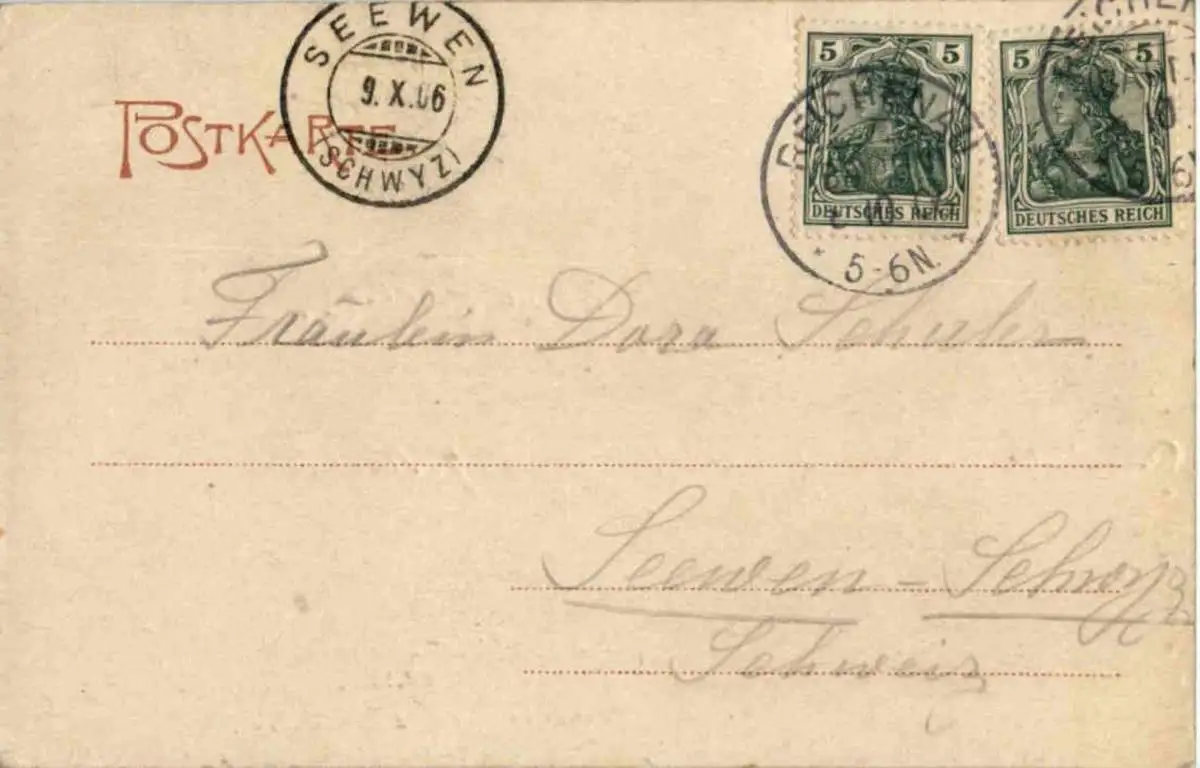 POSTKARTE
SEEWEN
9. X. 06
(SCHWYZ)
5 5
DEUTSCHES REICH
5 5
DEUTSCHES REICH
10
5-6N.
Fräulein Dora Schuler
Seewen - Schwyz
Schweiz